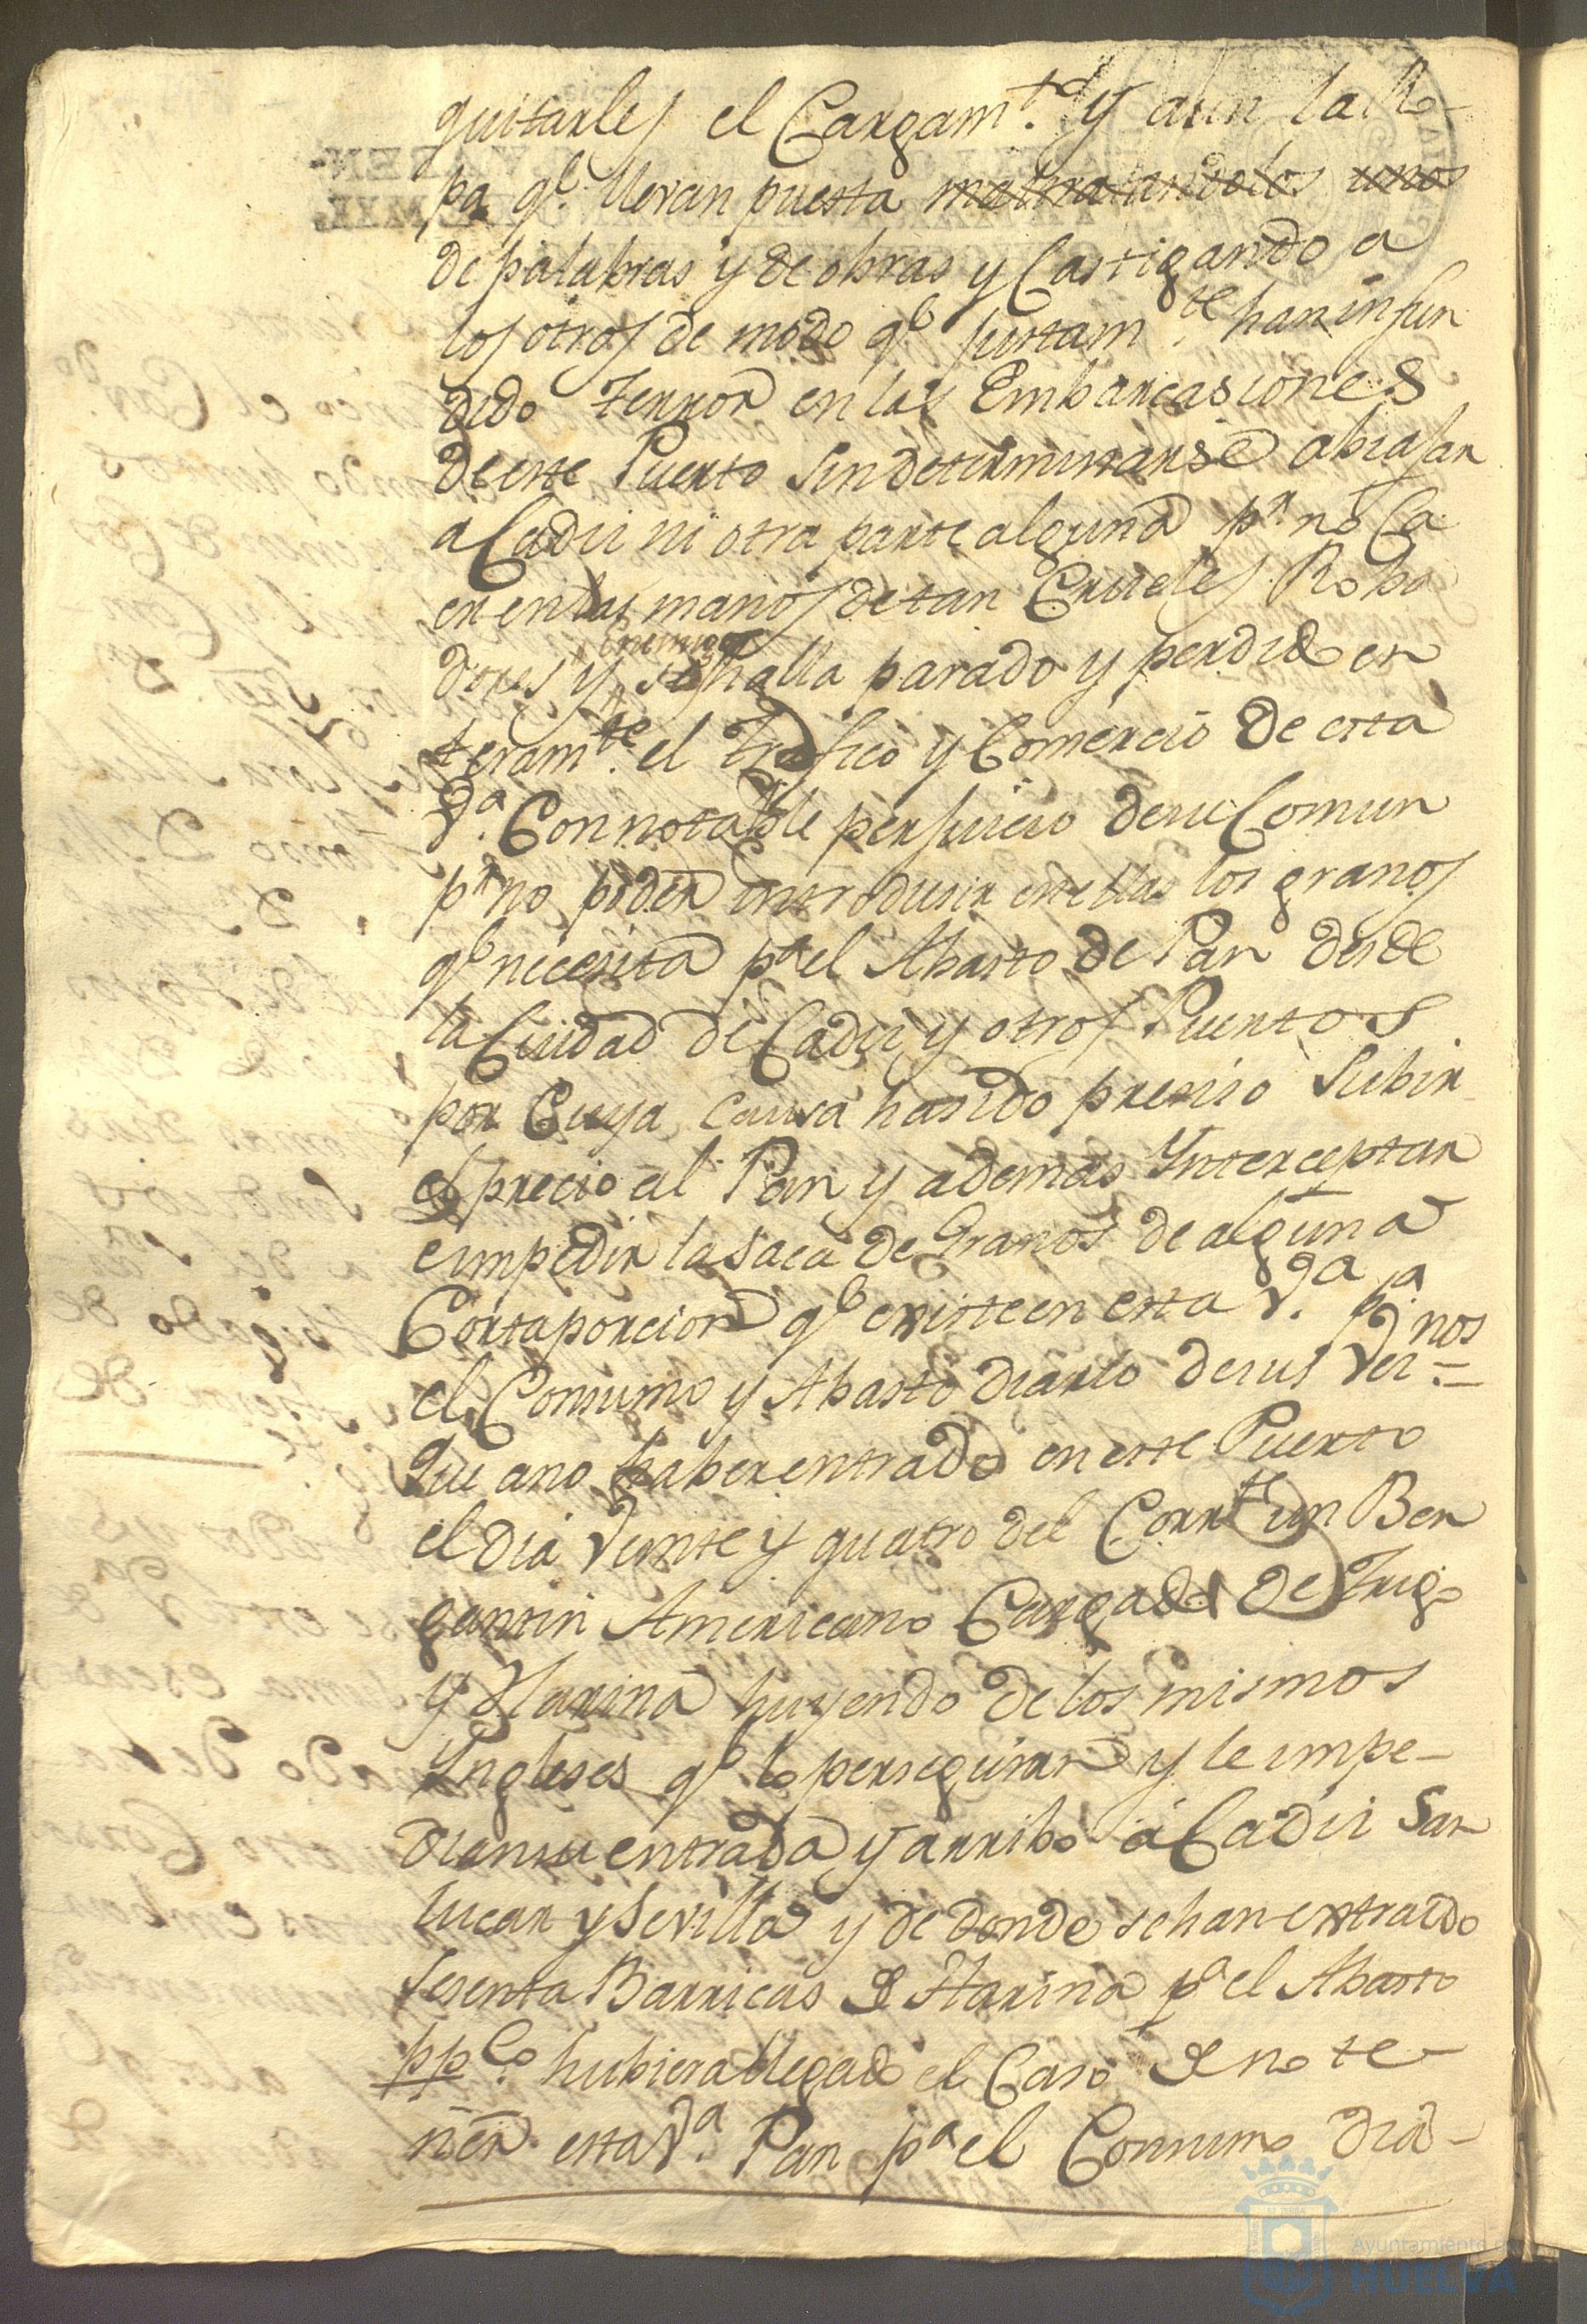 quitarles el Cargam.to y aun la Ro-
pa q.e llevan puesta maltratandolos unos
de palabras y de obras y Castigando a
los otros de modo q.e justam.te han infun
dido terror en las Embarcasiones
de este Puerto sin determinarse abiajar
a Cadiz ni otra parte alguna p.r no Ca
er en las manos de tan Crueles Roba
dores y enemigos se halla parado y perdido en
teram.te el Trafico y Comercio de esta
V.a Con notable perjuicio de su Comun
p.r no poder introdusir en ella los granos
q.e necesita p.a el Abasto de Pan desde
la Ciudad de Cadiz y otros Puertos
por Cuya causa ha sido presiso Subir
el precio al Pan y ademas Ynterceptar
e impedir la saca de Granos de alguna
Corta porcion q.e existe en esta V.a p.a
el Consumo y Abasto diario de sus Vez.nos =
Que a no haber entrado en este Puerto
el dia Veinte y quatro del Corr.te un Ber
gantin Americano Cargado de Trigo
y Harina huyendo de los mismos
Yngleses q.e lo perseguian y le impe-
dian su entrada y arribo a Cadiz San
lucar y Sevilla y de donde se han extraido
sesenta Barricas de Harina p.a el Abasto
pp.co hubiera llegado el Caso de no te-
ner esta V.a Pan p.a el Consumo dia-
Ayuntamiento de
HUELVA